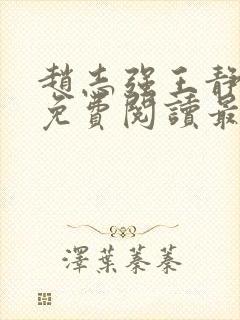 趙志強王靜
免費閱讀最
澤葉蓁蓁